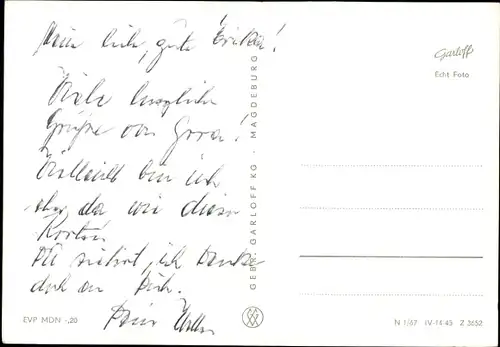 Mein lieb, gute Erika!
Viele herzliche
Grüße von
Vielleicht bin ich
eher da wie diese
Karte.
Du siehst, ich denke
doch an Dich.
Dein
GEBR. GARLOFF KG · MAGDEBURG
Garloff
Echt Foto
EVP MDN -,20
N 1/67 IV-14-45 Z 3652